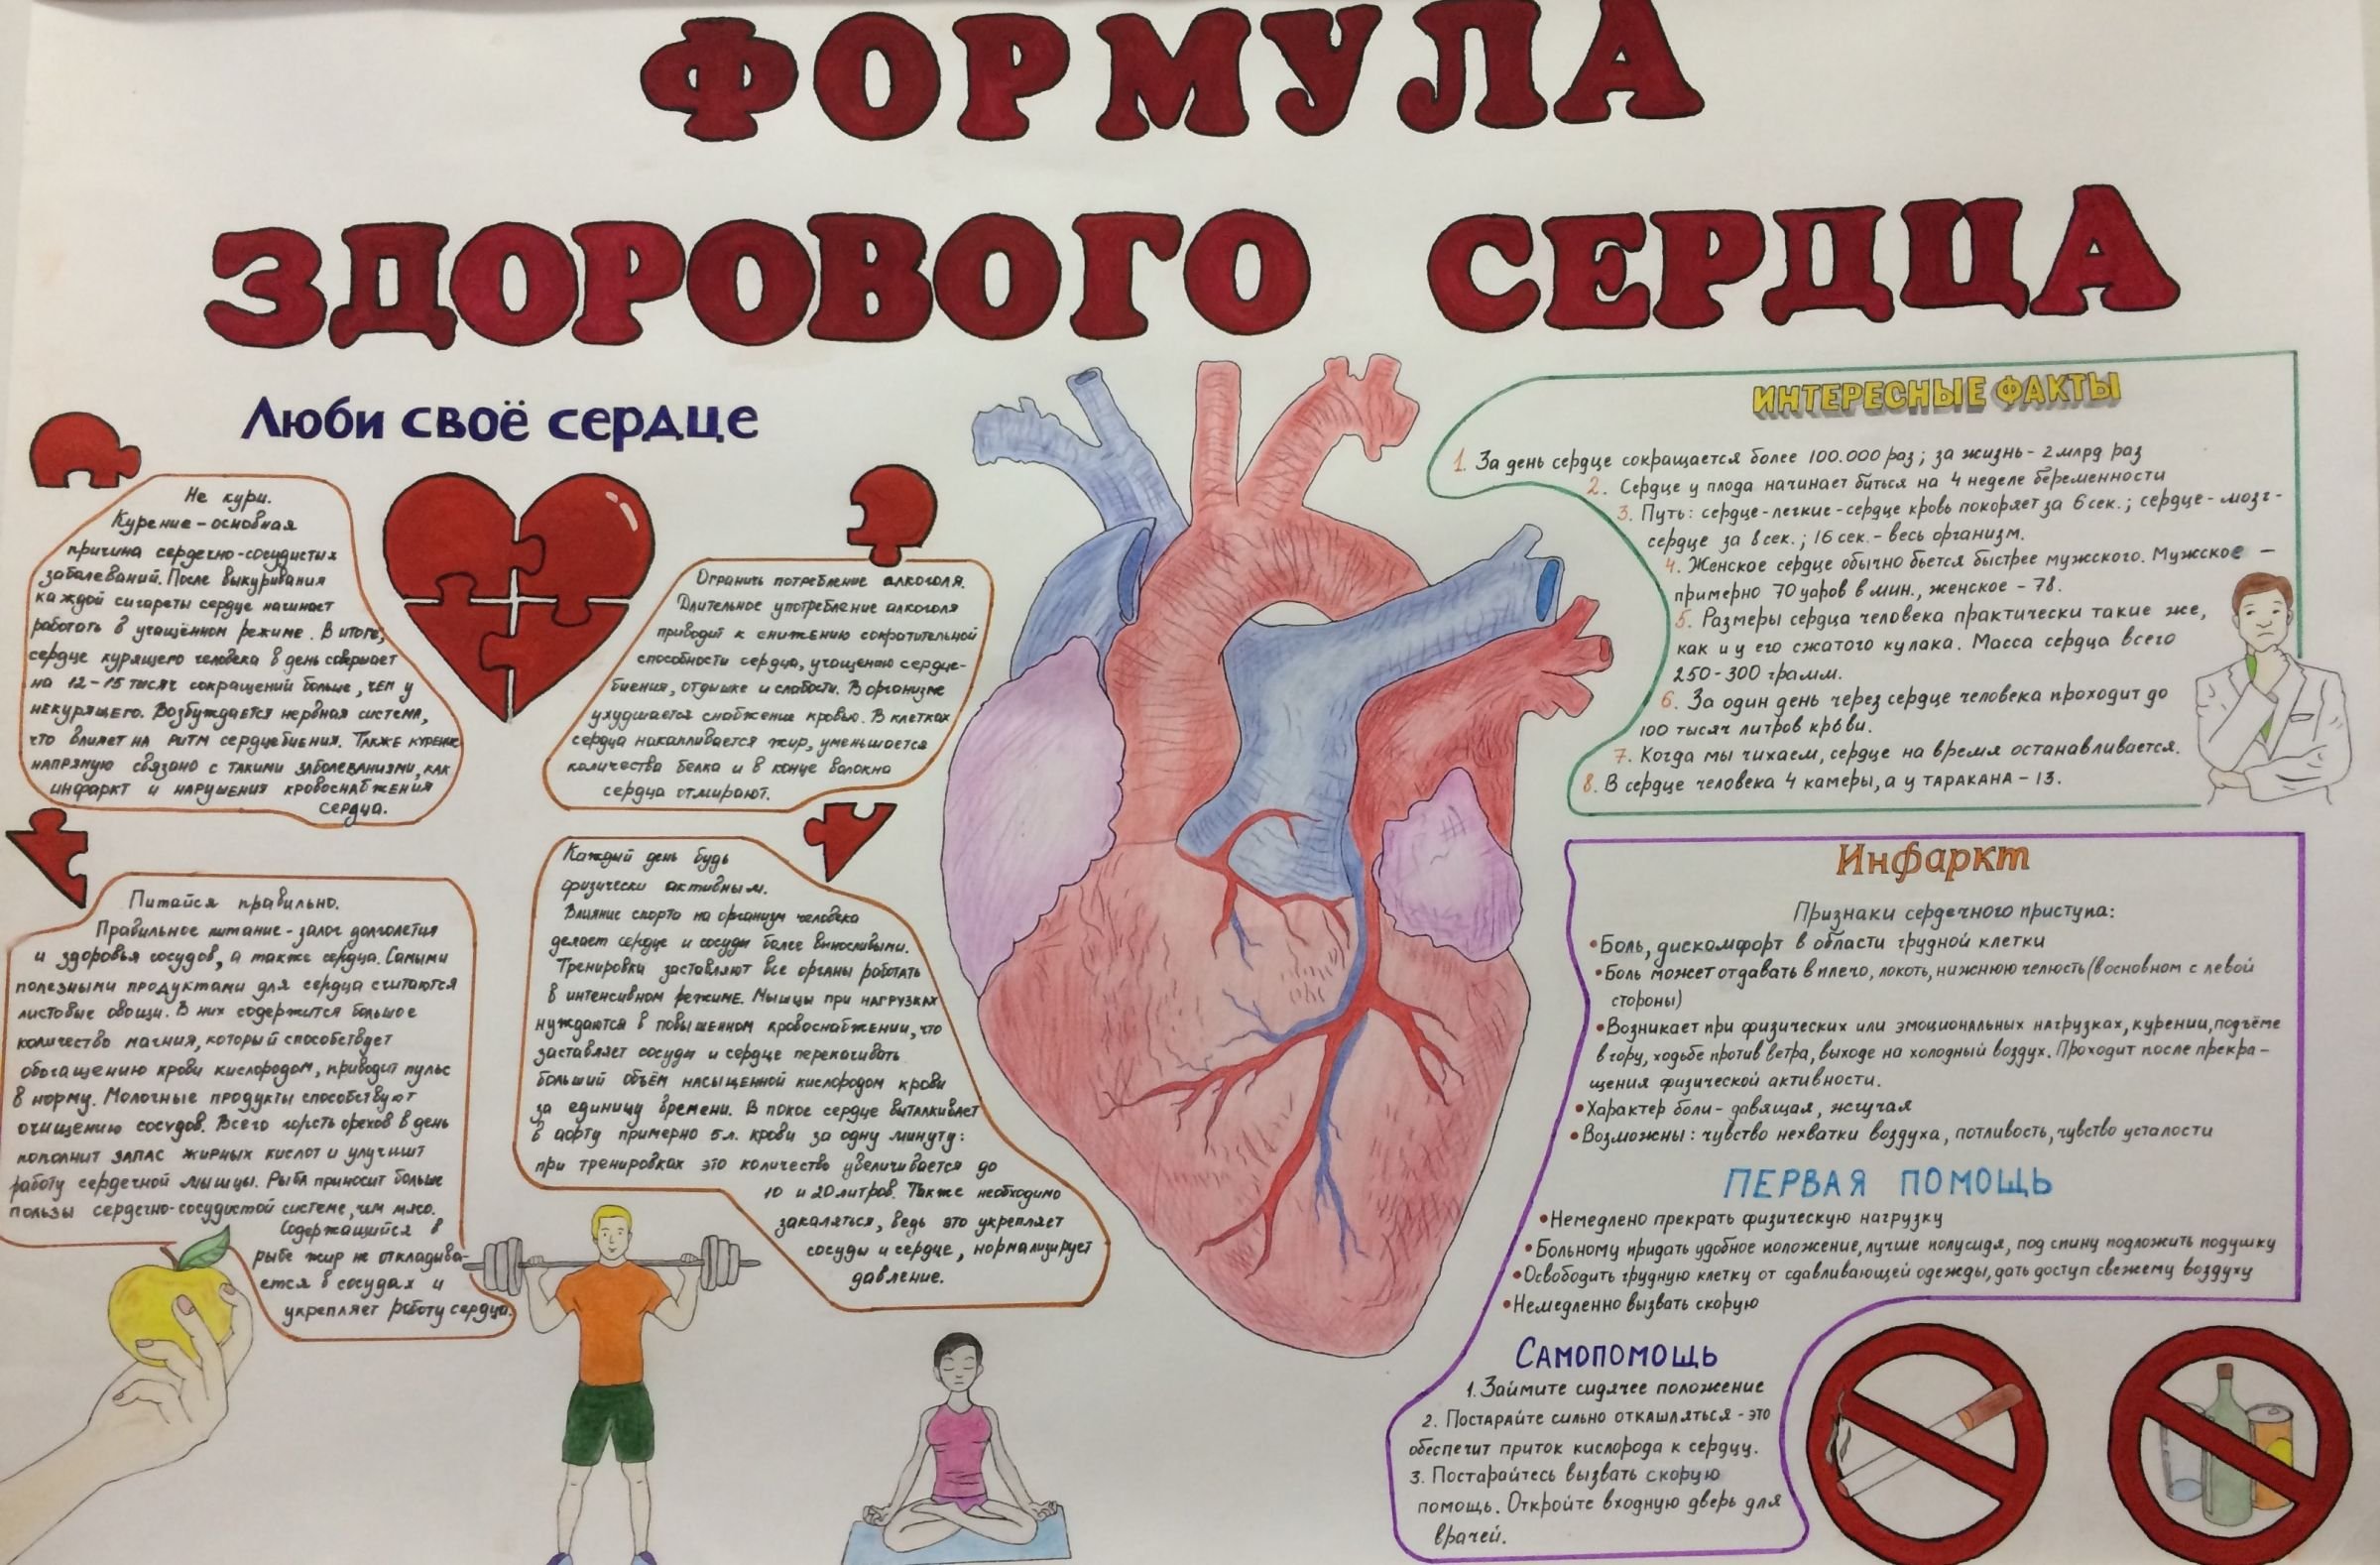 ФОРМУЛА
ЗДОРОВОГО СЕРДЦА
Люби своё сердце
Не кури.
Курение - основная
причина сердечно-сосудистых
заболеваний. После выкуривания
каждой сигареты сердце начинает
работать в учащённом режиме. В итоге,
сердце курящего человека в день совершает
на 12-15 тысяч сокращений больше, чем у
некурящего. Возбуждается нервная система,
что влияет на ритм сердцебиения. Также курение
напрямую связано с такими заболеваниями, как
инфаркт и нарушения кровоснабжения
сердца.
Ограничь потребление алкоголя.
Длительное употребление алкоголя
приводит к снижению сократительной
способности сердца, учащению сердце-
биения, отдышке и слабости. В организме
ухудшается снабжение кровью. В клетках
сердца накапливается жир, уменьшается
количества белка и в конце волокна
сердца отмирают.
Питайся правильно.
Правильное питание - залог долголетия
и здоровья сосудов, а также сердца. Самыми
полезными продуктами для сердца считаются
листовые овощи. В них содержится большое
количество магния, который способствует
обогащению крови кислородом, приводит пульс
в норму. Молочные продукты способствуют
очищению сосудов. Всего горсть орехов в день
пополнит запас жирных кислот и улучшит
работу сердечной мышцы. Рыба приносит больше
пользы сердечно-сосудистой системе, чем мясо.
Содержащийся в
рыбе жир не откладыва-
ется в сосудах и
укрепляет работу сердца.
Каждый день будь
физически активным.
Влияние спорта на организм человека
делает сердце и сосуды более выносливыми.
Тренировки заставляют все органы работать
в интенсивном режиме. Мышцы при нагрузках
нуждаются в повышенном кровоснабжении, что
заставляет сосуды и сердце перекачивать
больший объём насыщенной кислородом крови
за единицу времени. В покое сердце выталкивает
в аорту примерно 5 л. крови за одну минуту:
при тренировках это количество увеличивается до
10 и 20 литров. Также необходимо
закаляться, ведь это укрепляет
сосуды и сердце, нормализирует
давление.
ИНТЕРЕСНЫЕ ФАКТЫ
1. За день сердце сокращается более 100.000 раз; за жизнь - 2 млрд раз
2. Сердце у плода начинает биться на 4 неделе беременности
3. Путь: сердце-легкие-сердце кровь покоряет за 6 сек.; сердце-мозг-
сердце за 8 сек.; 16 сек. - весь организм.
4. Женское сердце обычно бьется быстрее мужского. Мужское –
примерно 70 уаров в мин., женское - 78.
5. Размеры сердца человека практически такие же,
как и у его сжатого кулака. Масса сердца всего
250-300 грамм.
6. За один день через сердце человека проходит до
100 тысяч литров крови.
7. Когда мы чихаем, сердце на время останавливается.
8. В сердце человека 4 камеры, а у таракана - 13.
Инфаркт
Признаки сердечного приступа:
•Боль, дискомфорт в области грудной клетки
•Боль может отдавать в плечо, локоть, нижнюю челюсть (в основном с левой
стороны)
•Возникает при физических или эмоциональных нагрузках, курении, подъёме
в гору, ходьбе против ветра, выходе на холодный воздух. Проходит после прекра-
щения физической активности.
•Характер боли - давящая, жгучая
•Возможны: чувство нехватки воздуха, потливость, чувство усталости
ПЕРВАЯ ПОМОЩЬ
•Немедлено прекрать физическую нагрузку
•Больному придать удобное положение, лучше полусидя, под спину подложить подушку
•Освободить грудную клетку от сдавливающей одежды, дать доступ свежему воздуху
•Немедленно вызвать скорую
Самопомощь
1. Займите сидячее положение
2. Постарайте сильно откашляться - это
обеспечит приток кислорода к сердцу.
3. Постарайтесь вызвать скорую
помощь. Откройте входную дверь для
врачей.